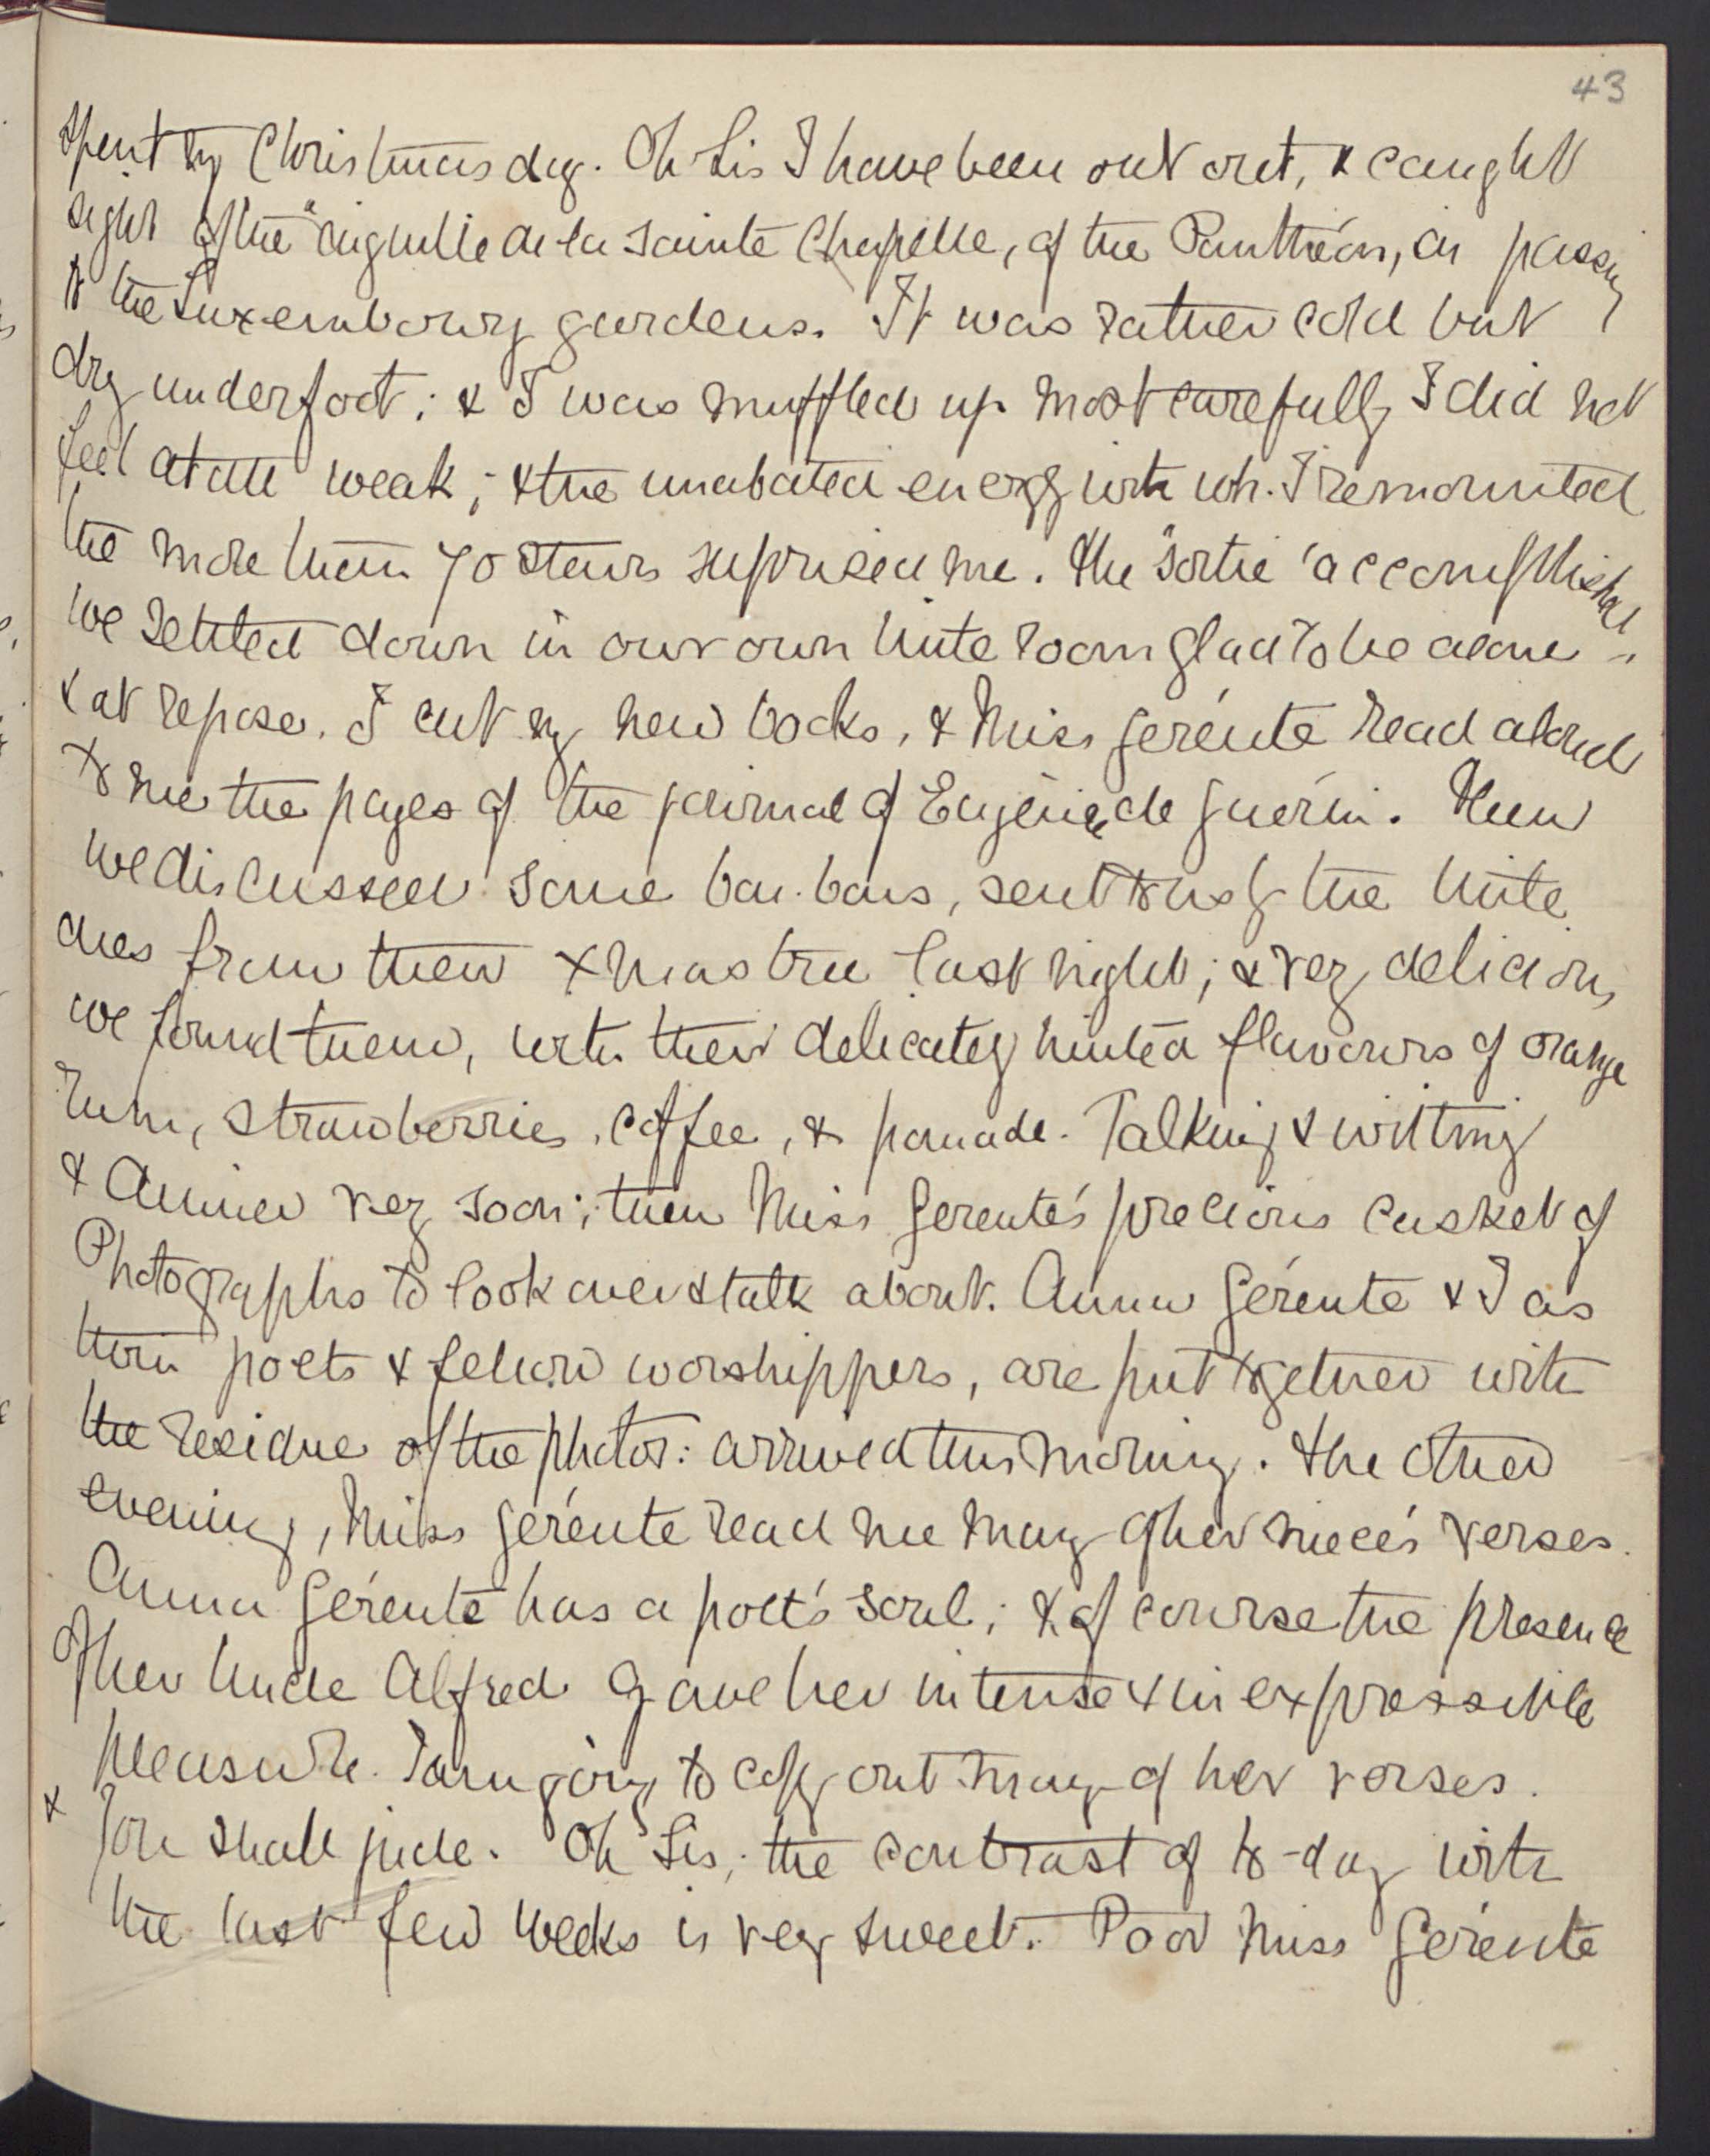 43
spent my Christmas day. Oh Lis I have been out out, & caught
sight of the "aiguille de la Sainte Chapelle, of the Panthéon, in passing
to the Luxembourg gardens. It was rather cold but
dry underfoot; & I was muffled up most carefully I did not
feel at all weak; & the unabated energy with wh. I remounted
the more than 70 stairs suprised me. The "sortie" accomplished
we settled down in our own little room glad to be alone
& at repose. I cut my new books, & Miss Gérente read aloud
to me the pages of the journal of Eugénie de Guérin. Then
we discussed some bon-bons, sent to us by the little
ones from their Xmas tree last night; & very delicious
we found them, with their delicately hinted flavours of orange
rum, strawberries, coffee, & pomade. Talking & writting
& dinner very soon; then Miss Gerente's precious casket of
Photographs to look over & talk about. Anna Gérente & I as
twin poets & fellow worshippers, are put together with
the residue of the photos: arrived this morning. The other
evening, Miss Gérente read me many of her niece's verses.
Anna Gérente has a poet's soul; & of course the presence
of her Uncle Alfred gave her intense & inexpressible
pleasure. I am going to copy out many of her verses.
& you shall jude. Oh Lis, the contrast of to-day with
the last few weeks is very sweet. Poor Miss Gérente